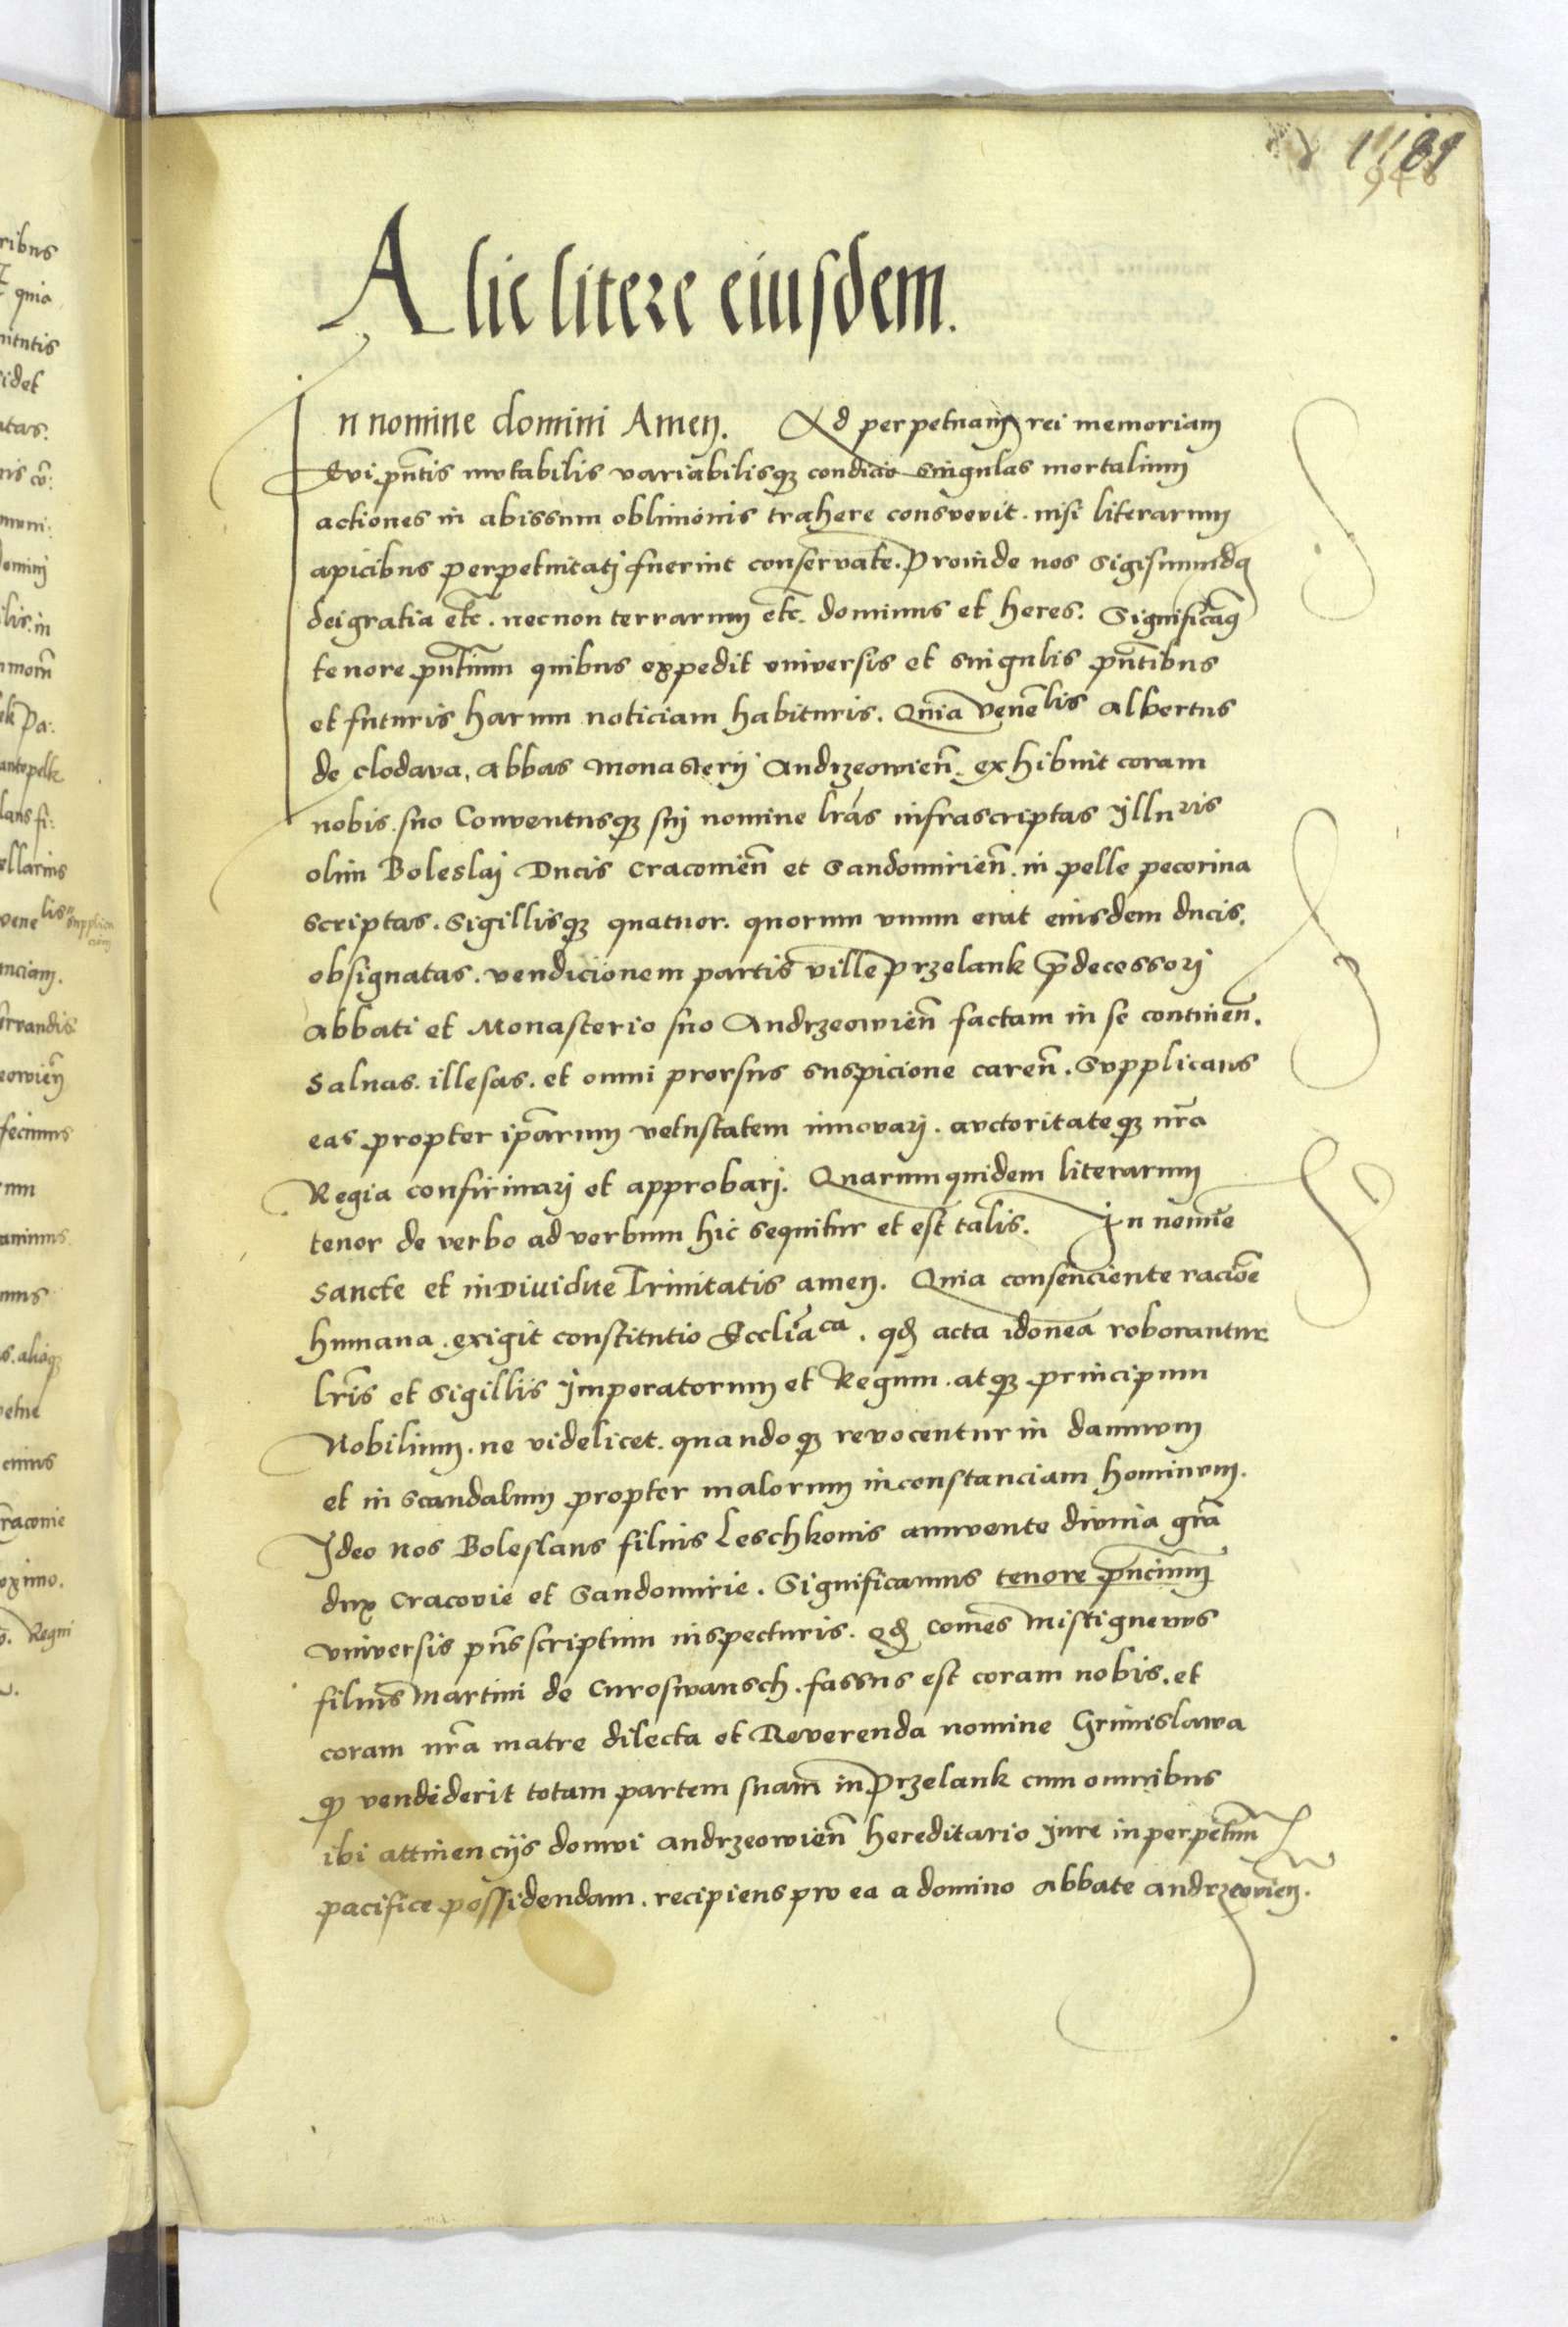 Alie litere eiusdem.
In nomine domini Amen. Ad perpetuam rei memoriam
Evi pñtis mutabilis variabilisqȝ condicio singulas mortalium
actiones in abissum oblivionis trahere consvevit. nisi literarum
apicibus perpetuitatj fuerint conservate. Proinde nos Sigismundꝯ
dei gratia etc̃. necnon terrarum etc̃. dominus et heres. Significamꝯ
tenore pñtium quibus expedit vniversis et singulis pñtibus
et futuris harum noticiam habituris. Quia venelis Albertus
de clodava, Abbas Monasterij Andrzeowieñ. exhibuit coram
nobis. suo Conventusqȝ suj nomine lr̃as infrascriptas Yllũris
olim Boleslaj Ducis Cracovieñ et Sandomirieñ. in pelle pecorina
scriptas. Sigillisqȝ quatuor. quorum vnum erat eiusdem ducis.
obsignatas. vendicionem partis ville Przelank p̃decessorj
Abbati et Monasterio suo Andrzeowieñ factam in se contineñ.
Salvas. illesas. et omni prorsus suspicione careñ. Svpplicans
eas propter ip̃arum vetustatem innovarj. avctoritateqȝ nr̃a
Regia confirmarj et approbarj. Quarumquidem literarum
tenor de verbo ad verbum hic sequitur et est talis. In nomĩe
Sancte et individue Trinitatis amen. Quia consenciente racioẽ
humana. exigit constitutio Eccliãca. qđ acta idonea roborantur
lr̃is et sigillis Imperatorum et Regum. atqȝ principum
Nobilium. ne videlicet. quandoqȝ revocentur in damnum
et in scandalum propter malorum inconstanciam hominum.
Ideo nos Boleslaus filius Leschkonis annvente divina gr̃a
dux Cracovie et Sandomirie. Significamus tenore pñcium
vniversis pñs scriptum inspecturis. qđ Comes Mistignevus
filius Martini de Curoswansch. fassus est coram nobis. et
coram nr̃a matre dilecta et Reverenda nomine Grimislawa
qȝ vendiderit totam partem suam in Przelank cum omnibus
ibi attinencijs domvi andrzeowieñ hereditario iure in perpetuum
pacifice possidendam. recipiens pro ea a domino Abbate andrzeovieñ.